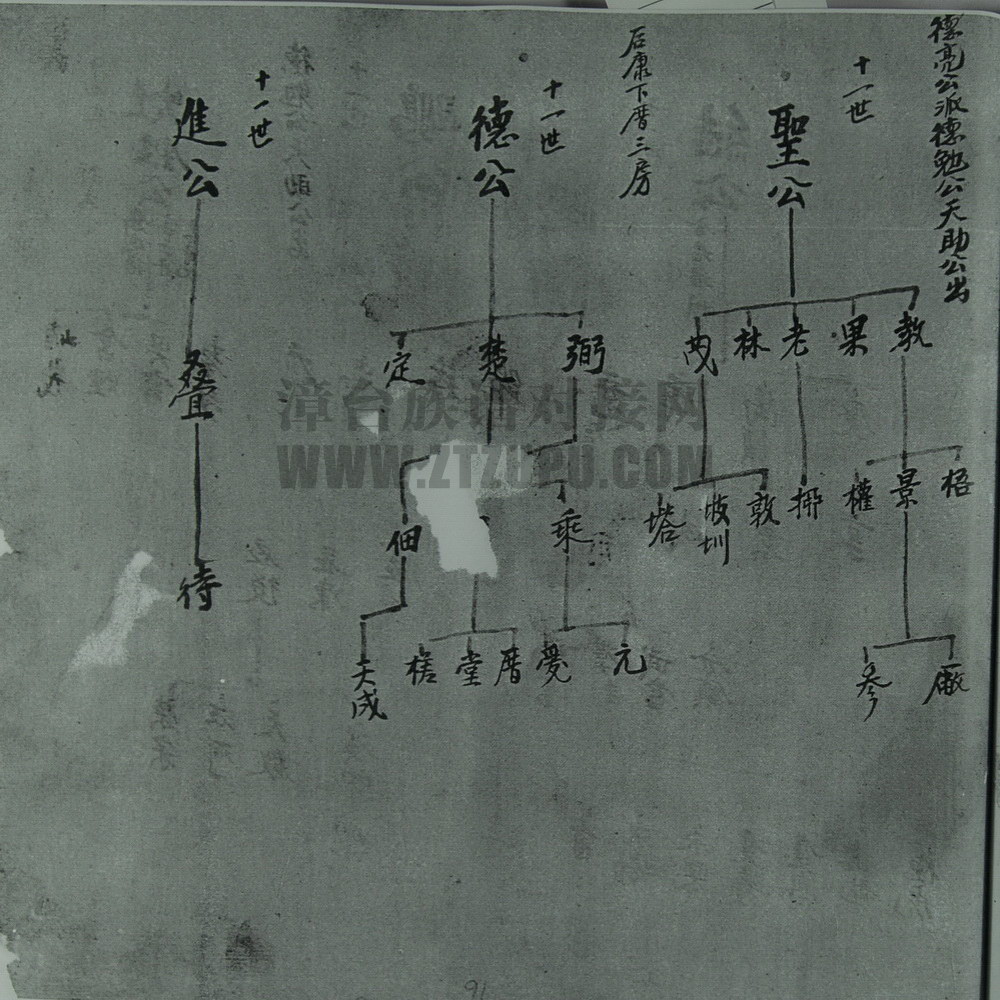 德亮公派德勉公天助公出
十一世
聖公
教
果
老
林
茂
梧
景
權
挪
敦
坡圳
塔
廠
参
后康下厝三房
十一世
德公
弼
楚
定
乘
佃
元
堂
厝
天成
十一世
進公
叠
待
漳台族谱对接网
WWW.ZTZUPU.COM
91